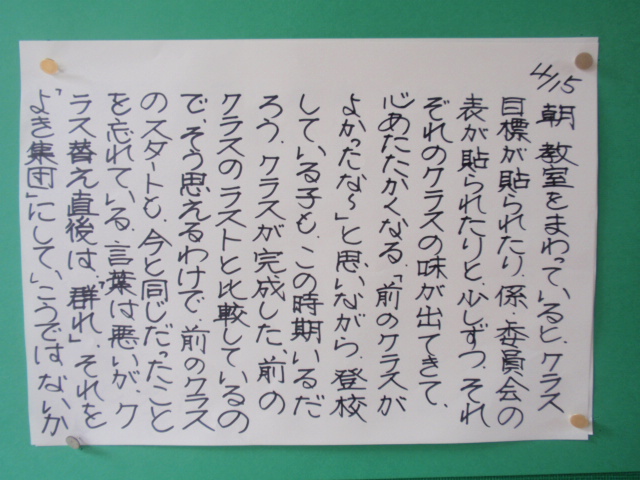 4/15
朝 教室をまわっていると、クラス
目標が貼られたり、係・委員会の
表が貼られたりと、少しずつ、それ
ぞれのクラスの味が出てきて、
心あたたかくなる。「前のクラスが
よかったな～」と思いながら、登校
している子も、この時期いるだ
ろう。クラスが完成した、前の
クラスのラストと比較しているの
で、そう思えるわけで、前のクラス
のスタートも、今と同じだったこと
を忘れている。言葉は悪いが、ク
ラス替え直後は、"群れ"。それを
"よき集団"にして、いこうではないか